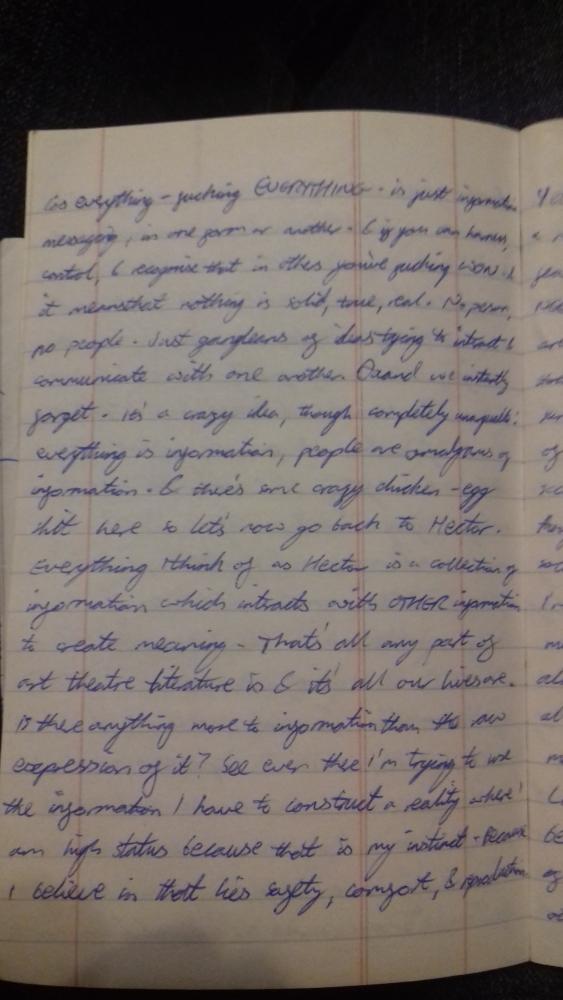 Cos everything - fucking EVERYTHING - is just information Yo
messaging, in one form or another. & if you can harness, a
control, & recognise that in others you've fucking WON. &
it means that nothing is solid, true, real. No person,
no people. Just of ideas trying to intract &
communicate with one another. and we instantly
forget. It's a crazy idea, though completely
everything is information, people are of of
information. & there's some crazy chicken-egg
shit here so let's now go back to Hector.
Everything I think of as Hector is a collection of
information which intracts with OTHER information
to create meaning - That's all any part of
art theatre literature is & it's all our lives are.
Is there anything more to information than the raw
expression of it? See even there I'm trying to use
the information I have to construct a reality where I
am high status because that is my instinct - Because
I believe in that lies safety, comfort, & reproduction